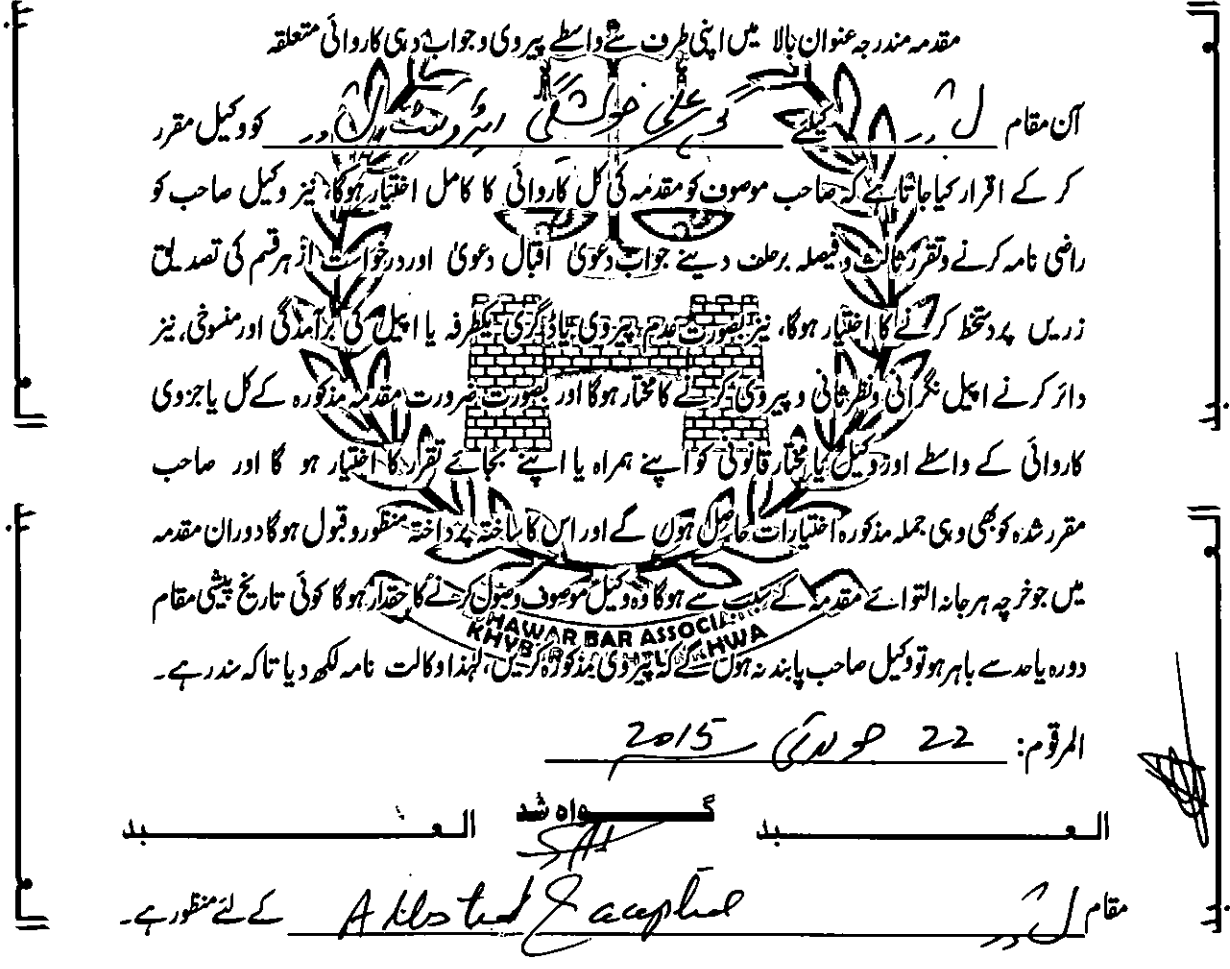 مقدمہ مندرجہ عنوان بالا میں اپنی طرف سے واسطے پیروی و جواب دہی کاروائی متعلقہ
آن مقام کیلئے علی ایڈوکیٹ کو وکیل مقرر
کر کے اقرار کیا جاتا ہے کہ صاحب موصوف کو مقدمہ کی کل کاروائی کا کامل اختیار ہوگا، نیز وکیل صاحب کو
راضی نامہ کرنے وتقرر ثالث و فیصلہ برحلف دینے جواب دعویٰ اقبال دعویٰ اور درخواست از ہر قسم کی تصدیق
زریں پر دستخط کرنے کا اختیار ہوگا، نیز بصورت عدم پیروی یا ڈگری یکطرفہ یا اپیل کی برآمدگی اور منسوخی، نیز
دائر کرنے اپیل نگرانی ونظرثانی و پیروی کرنے کا مختار ہوگا اور بصورت ضرورت مقدمہ مذکورہ کے کل یا جزوی
کاروائی کے واسطے اور وکیل یا مختار قانونی کو اپنے ہمراہ یا اپنے بجائے تقرار کا اختیار ہو گا اور صاحب
مقرر شدہ کو بھی وہی جملہ مذکورہ اختیارات حاصل ہوں گے اور اس کا ساختہ پرداختہ منظور و قبول ہوگا دوران مقدمہ
میں جو خرچہ ہرجانہ التوائے مقدمہ کے سبب سے ہوگا وہ وکیل موصوف وصول کرنے کا حقدار ہوگا کوئی تاریخ پیشی مقام
دورہ یا حد سے باہر ہو تو وکیل صاحب پابند نہ ہوں گے کہ پیروی مذکورہ کریں، لہٰذا وکالت نامہ لکھ دیا تاکہ سندر ہے۔
HAWAR BAR ASSOCIA
KHYB HWA
المرقوم: 22 جولائی 2015
العبد گواہ شد العبد
مقام Attested & accepted کے لئے منظور ہے۔